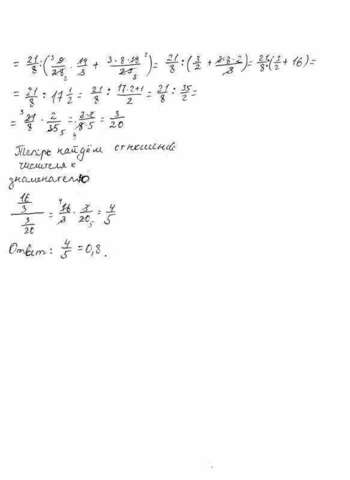 = 21/8 : (3 9/28 · 19/3 + 3·8·19/21) = 21/8 : (3/2 + 2·8·2/3) = 21/8 : (3/2 + 16) =
= 21/8 : 17 1/2 = 21/8 : 17·2+1/2 = 21/8 : 35/2 =
= 21/8 · 2/35 = 3·2/8·5 = 3/20
Теперь найдём отношение
числителя к
знаменателю
16/3 / 3/20 = 16/3 · 3/20 = 4/5
Ответ: 4/5 = 0,8.